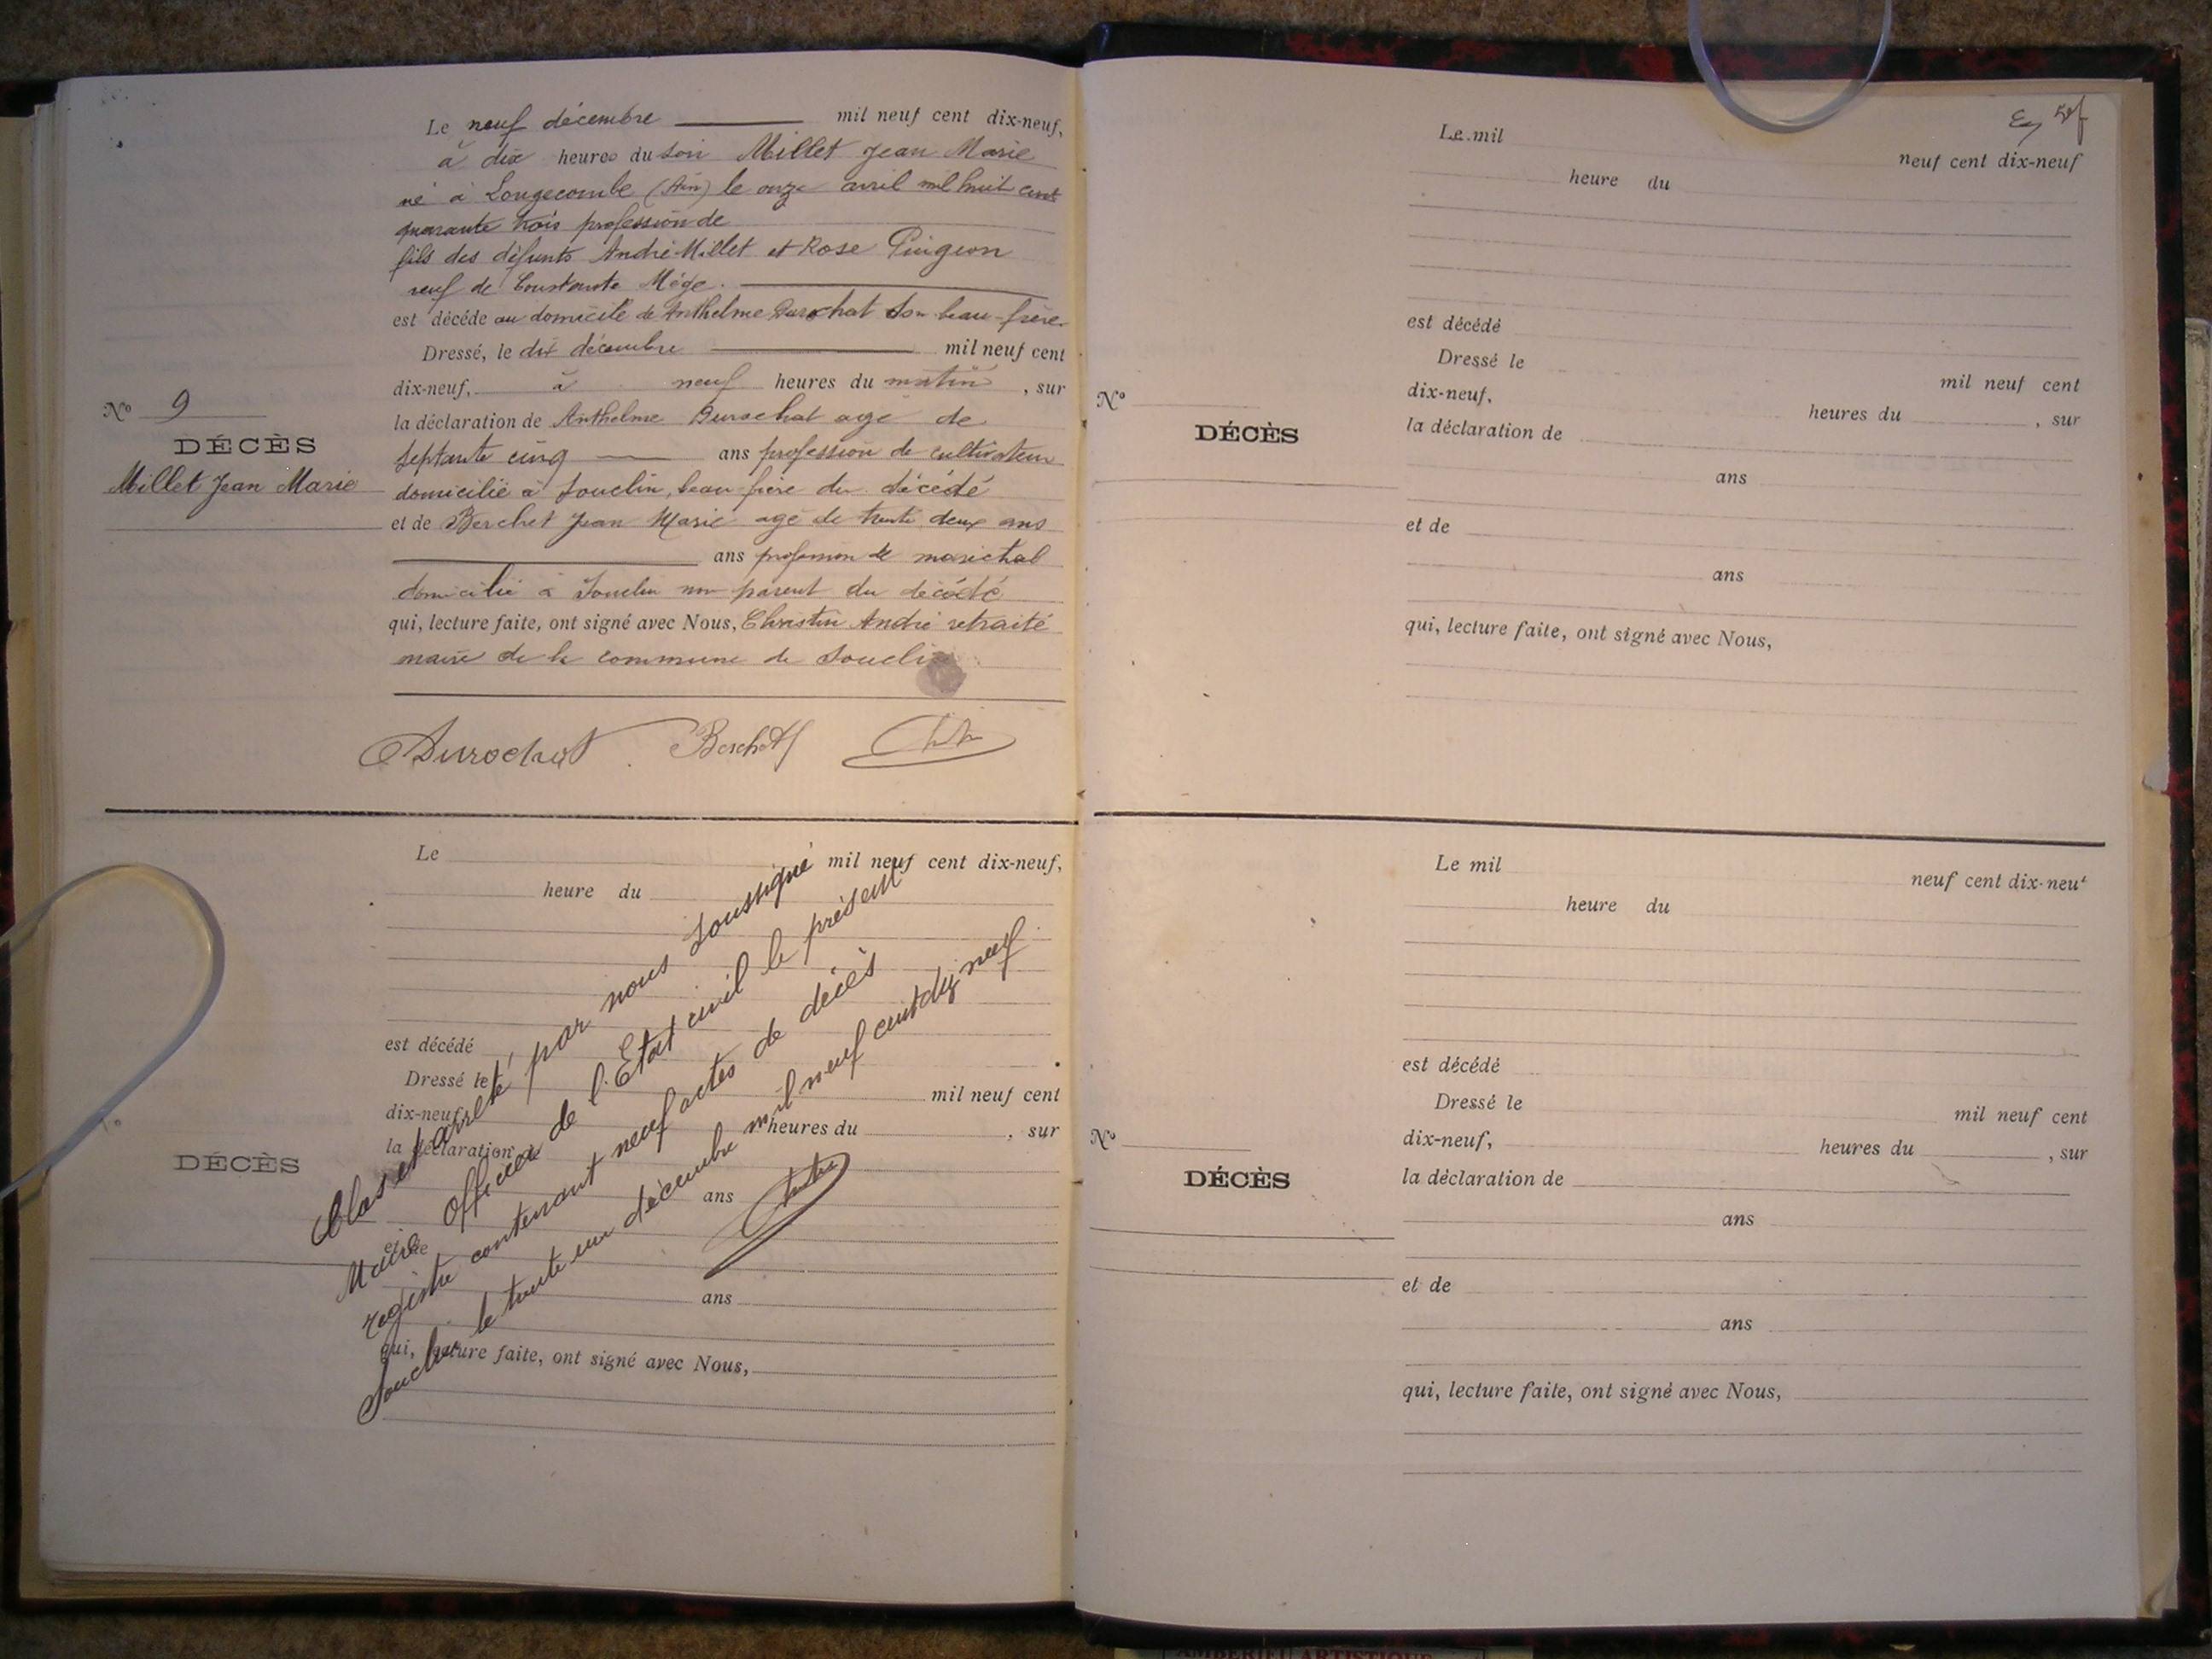 N° 9
DÉCÈS
Millet Jean Marie
Le neuf décembre mil neuf cent dix-neuf,
à dix heures du soir Millet Jean Marie
né à Longecombe (Ain) le onze avril mil huit cent
quarante trois profession de
fils des défunts André Millet et Rose Pingeon
veuf de Constante Mége.
est décédé au domicile de Anthelme Durochat son beau-frère
Dressé, le dix décembre mil neuf cent
dix-neuf, à neuf heures du matin, sur
la déclaration de Anthelme Durochat agé de
septante cinq ans profession de cultivateur
domicilié à Souclin, beau-frère du décédé
et de Berchet Jean Marie agé de trente deux ans
ans profession de maréchal
domicilié à Souclin non parent du décédé
qui, lecture faite, ont signé avec Nous, Christin André retraité
maire de la commune de Souclin
Durochat Berchet
DÉCÈS
Le mil neuf cent dix-neuf,
heure du
est décédé
Dressé le mil neuf cent
dix-neuf, heures du , sur
la déclaration
ans
et de
ans
qui, lecture faite, ont signé avec Nous,
Clos et arrêté par nous soussigné
Maire Officier de l'Etat civil le présent
registre contenant neuf actes de décès
Souclin le trente un décembre mil neuf cent dix neuf
N°
DÉCÈS
Le mil neuf cent dix-neuf
heure du
est décédé
Dressé le mil neuf cent
dix-neuf, heures du , sur
la déclaration de
ans
et de
ans
qui, lecture faite, ont signé avec Nous,
N°
DÉCÈS
Le mil neuf cent dix-neuf
heure du
est décédé
Dressé le mil neuf cent
dix-neuf, heures du , sur
la déclaration de
ans
et de
ans
qui, lecture faite, ont signé avec Nous,
AMBERIEU ARTISTIQUE